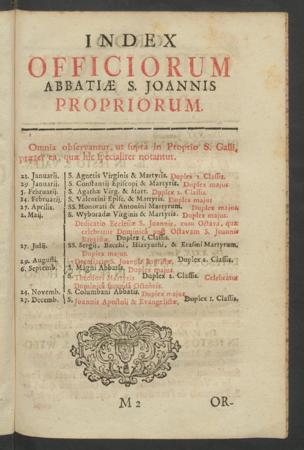 INDEX
OFFICIORUM
ABBATIÆ S. JOANNIS
PROPRIORUM.
Omnia observantur, ut supra in Proprio S. Galli,
præter ea, quæ hîc specialiter notantur.
21. Januarii. S. Agnetis Virginis & Martyris. Duplex 2. Classis.
29. Januarii. S. Constantii Episcopi & Martyris. Duplex majus.
5. Februarii. S. Agathæ Virg. & Mart. Duplex 2. Classis.
14. Februarii. S. Valentini Epis. & Martyris. Duplex majus.
27. Aprilis. SS. Honorati & Antonini Martyrum. Duplex majus.
2. Maij. S. Wyboradæ Virginis & Martyris. Duplex majus.
Dedicatio Ecclesiæ S. Joannis, cum Octava, quæ
celebratur Dominica post Octavam S. Joannis
Baptistæ. Duplex 1. Classis.
27. Julij. SS. Sergij, Bacchi, Hiacynthi, & Erasmi Martyrum,
Duplex majus.
29. Augusti. Decollationis S. Joannis Baptistæ. Duplex 2. Classis.
6. Septemb. S. Magni Abbatis. Duplex majus.
S. Theodori Martyris. Duplex 2. Classis. Celebratur
Dominica secunda Octobris.
24. Novemb. S. Columbani Abbatis. Duplex majus.
27. Decemb. S. Joannis Apostoli & Evangelistæ, Duplex 1. Classis.
M 2
OR-